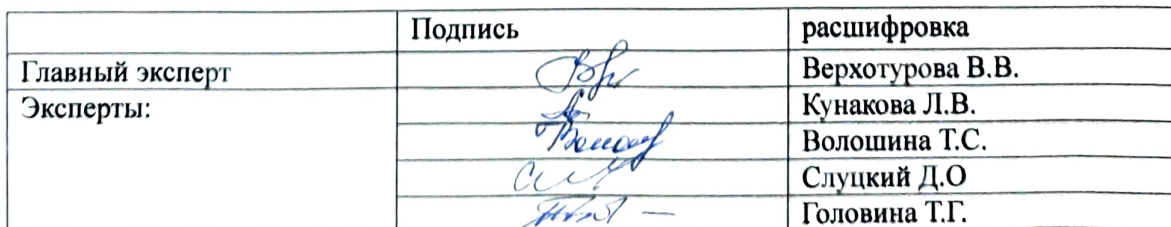 Подпись расшифровка
Главный эксперт Верхотурова В.В.
Эксперты: Кунакова Л.В.
Волошина Т.С.
Слуцкий Д.О
Головина Т.Г.